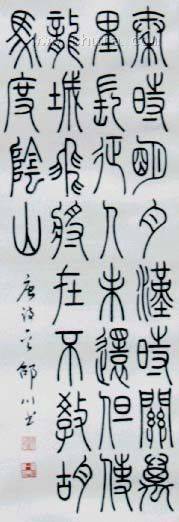 秦時明月漢時關萬
里長征人未還但使
龍城飛將在不教胡
馬度陰山
唐詩
川书